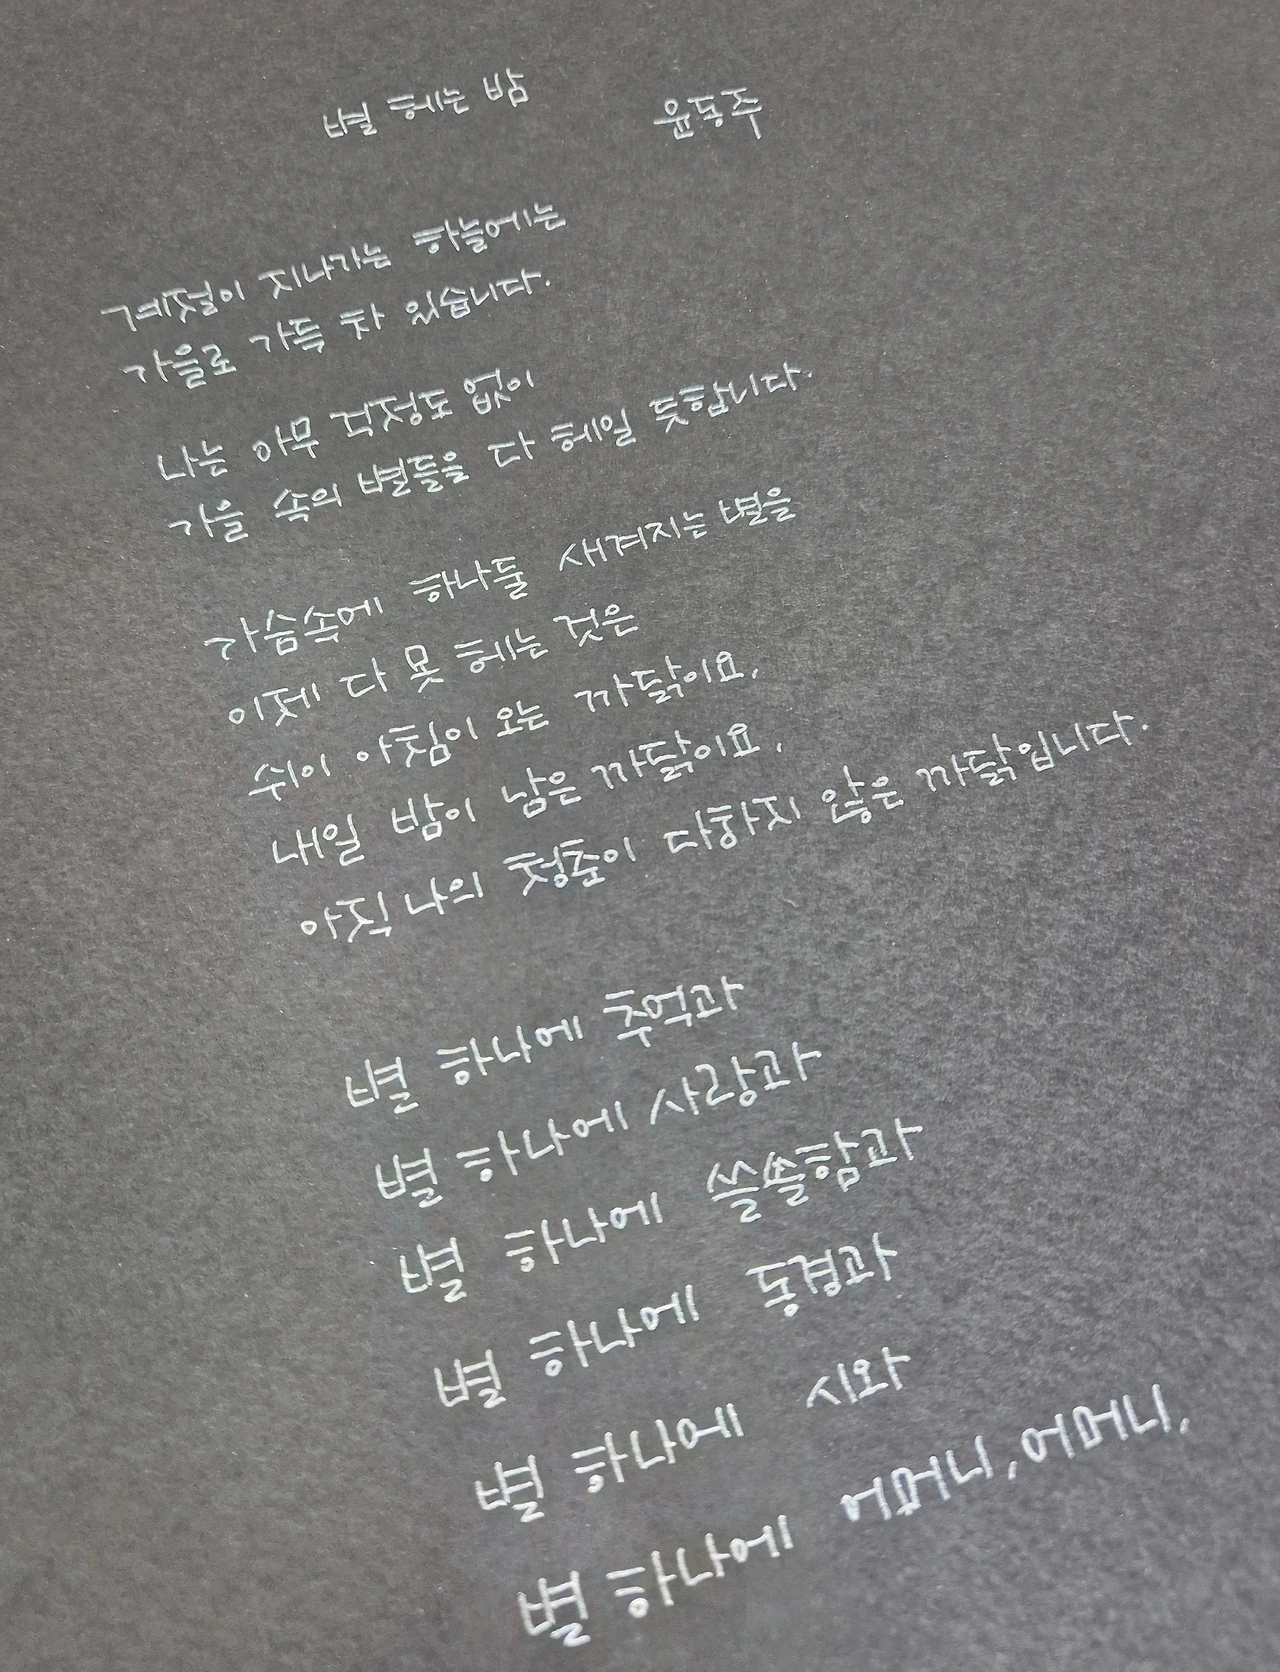 별 헤는 밤 윤동주
계절이 지나가는 하늘에는
가을로 가득 차 있습니다.
나는 아무 걱정도 없이
가을 속의 별들을 다 헤일 듯합니다.
가슴속에 하나둘 새겨지는 별을
이제 다 못 헤는 것은
쉬이 아침이 오는 까닭이요,
내일 밤이 남은 까닭이요,
아직 나의 청춘이 다하지 않은 까닭입니다.
별 하나에 추억과
별 하나에 사랑과
별 하나에 쓸쓸함과
별 하나에 동경과
별 하나에 시와
별 하나에 어머니, 어머니,